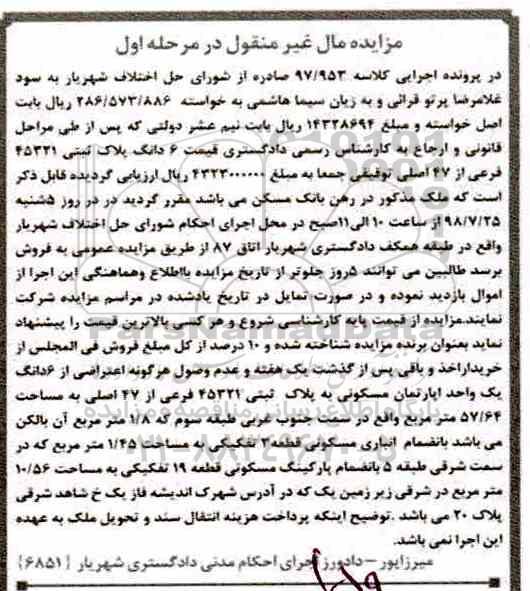 مزایده مال غیر منقول در مرحله اول
در پرونده اجرایی کلاسه ۹۷/۹۵۳ صادره از شورای حل اختلاف شهریار به سود
غلامرضا پرتو قرائی و به زیان سیما هاشمی به خواسته ۲۸۶/۵۷۳/۸۸۶ ریال بابت
اصل خواسته و مبلغ ۱۴۳۲۸۶۹۴ ریال بابت نیم عشر دولتی که پس از طی مراحل
قانونی و ارجاع به کارشناس رسمی دادگستری قیمت ۶ دانگ پلاک ثبتی ۴۵۳۲۱
فرعی از ۴۷ اصلی توقیفی جمعا به مبلغ ۴۳۲۳۰۰۰۰۰۰ ریال ارزیابی گردیده قابل ذکر
است که ملک مذکور در رهن بانک مسکن می باشد مقرر گردید در در روز ۵شنبه
۹۸/۷/۲۵ از ساعت ۱۰ الی۱۱صبح در محل اجرای احکام شورای حل اختلاف شهریار
واقع در طبقه همکف دادگستری شهریار اتاق ۸۷ از طریق مزایده عمومی به فروش
برسد طالبین می توانند ۵روز جلوتر از تاریخ مزایده بااطلاع وهماهنگی این اجرا از
اموال بازدید نموده و در صورت تمایل در تاریخ یادشده در مراسم مزایده شرکت
نمایند.مزایده از قیمت پایه کارشناسی شروع و هر کسی بالاترین قیمت را پیشنهاد
نماید بعنوان برنده مزایده شناخته شده و ۱۰ درصد از کل مبلغ فروش فی المجلس از
خریداراخذ و باقی پس از گذشت یک هفته و عدم وصول هرگونه اعتراضی از ۶دانگ
یک واحد اپارتمان مسکونی به پلاک ثبتی ۴۵۳۲۱ فرعی از ۴۷ اصلی به مساحت
۵۷/۶۴ متر مربع واقع در سمت جنوب غربی طبقه سوم که ۱/۸ متر مربع آن بالکن
می باشد بانضمام انباری مسکونی قطعه۲ تفکیکی به مساحت ۱/۴۵ متر مربع که در
سمت شرقی طبقه ۵ بانضمام پارکینگ مسکونی قطعه ۱۹ تفکیکی به مساحت ۱۰/۵۶
متر مربع در شرقی زیر زمین یک که در آدرس شهرک اندیشه فاز یک خ شاهد شرقی
پلاک ۲۰ می باشد .توضیح اینکه پرداخت هزینه انتقال سند و تحویل ملک به عهده
این اجرا نمی باشد.
میرزاپور -دادورز اجرای احکام مدنی دادگستری شهریار {۶۸۵۱}
ParsNamadData
پایگاه اطلاع رسانی مناقصه و مزایده
۰۲۱-۸۸۳۴۹۶۷۰-۵